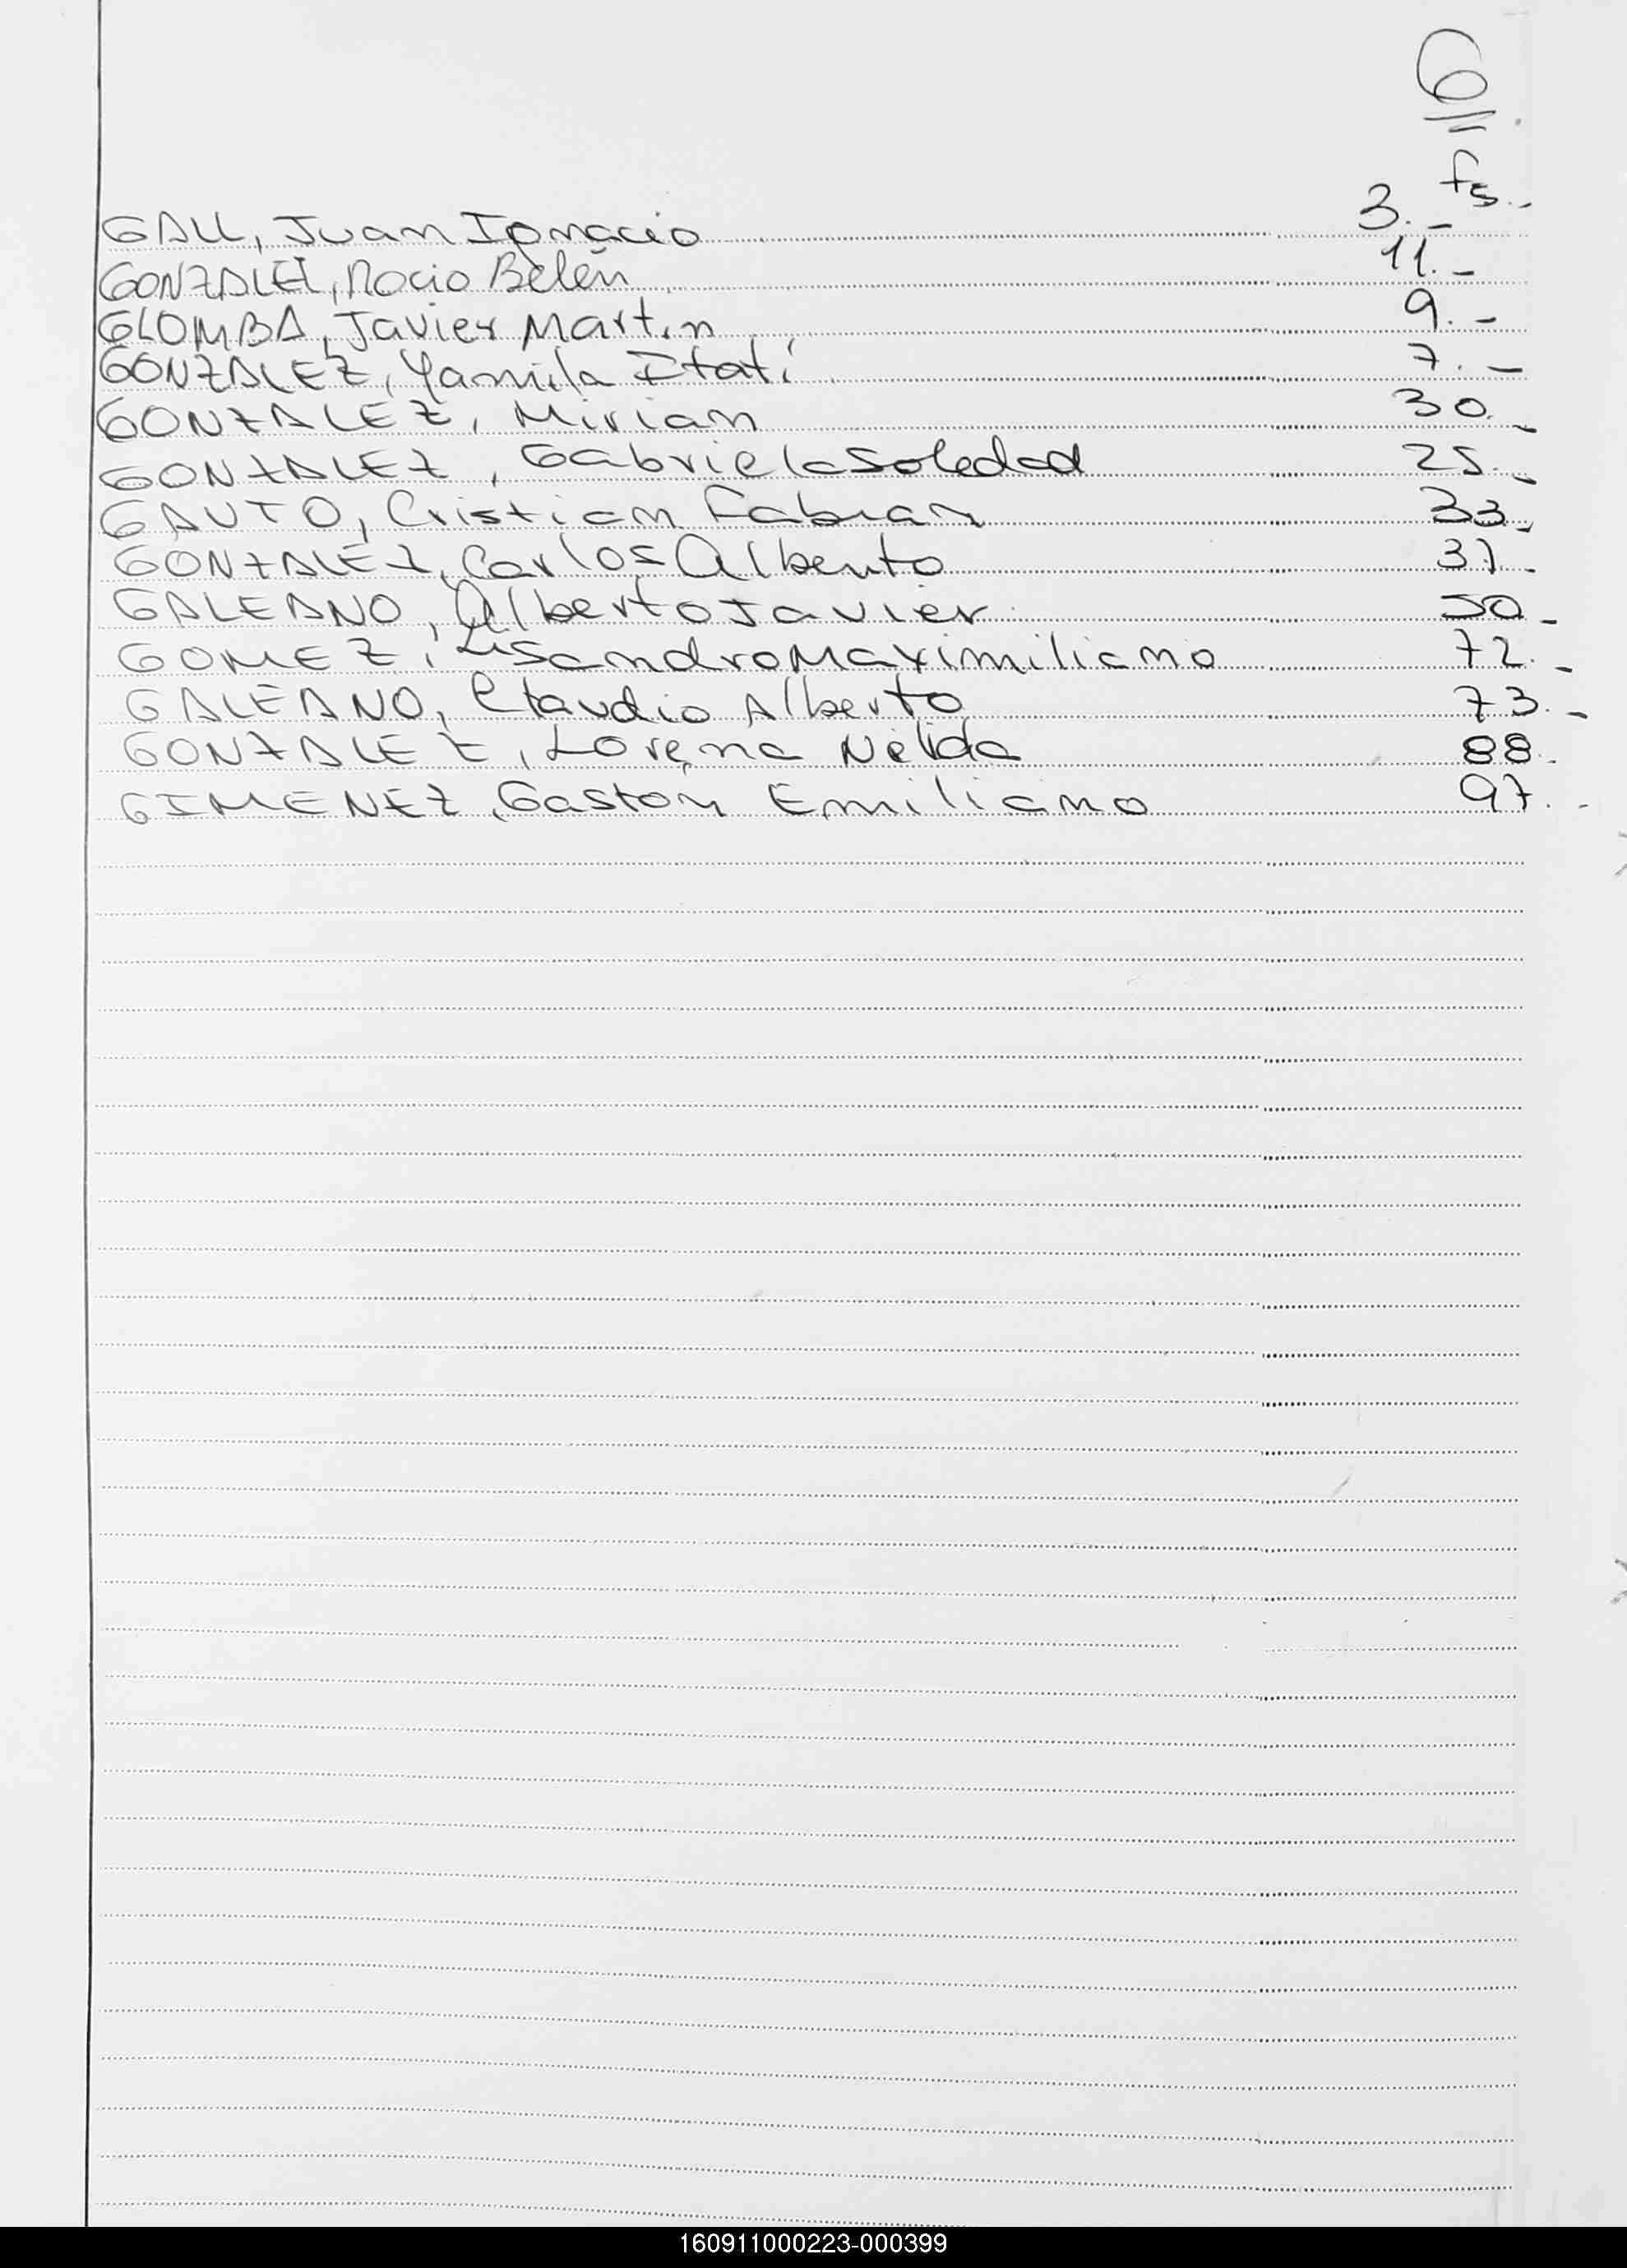 G
fs.-
GALL, Juan Ignacio 3.-
GONZALEZ, Rocio Belén 11.-
GLOMBA, Javier Martin 9.-
GONZALEZ, Yamila Itatí 7.-
GONZALEZ, Mirian 30.-
GONZALEZ, Gabriela Soledad 25.-
GAUTO, Cristian Fabian 33.-
GONZALEZ, Carlos Alberto 31.-
GALEANO, Alberto Javier 50.-
GOMEZ, Lisandro Maximiliano 72.-
GALEANO, Claudio Alberto 73.-
GONZALEZ, Lorena Nélida 88.-
GIMENEZ, Gaston Emiliano 97.-
160911000223-000399